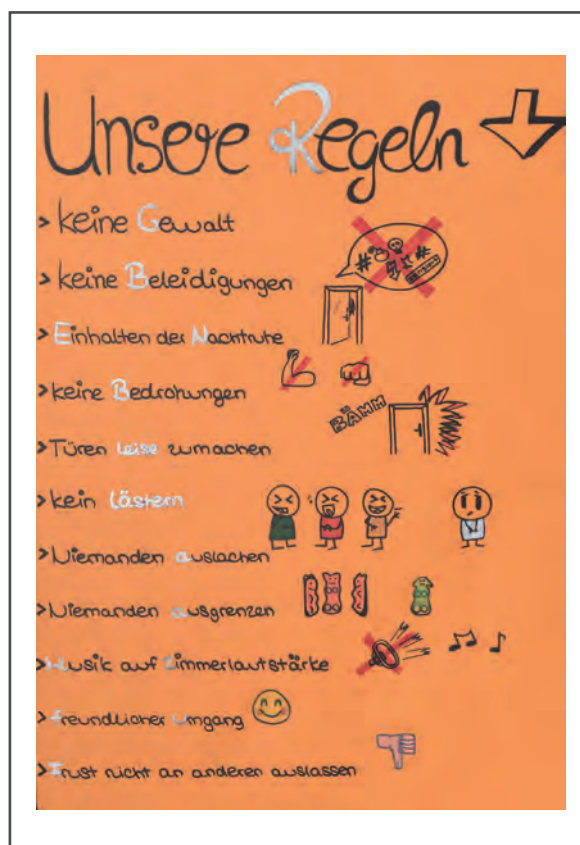 Unsere Regeln
> keine Gewalt
> keine Beleidigungen
> Einhalten der Nachtruhe
> keine Bedrohungen
BÄMM
> Türen leise zumachen
> kein Lästern
> Niemanden auslachen
> Niemanden ausgrenzen
> Musik auf Zimmerlautstärke
> Freundlicher Umgang
> Frust nicht an anderen auslassen